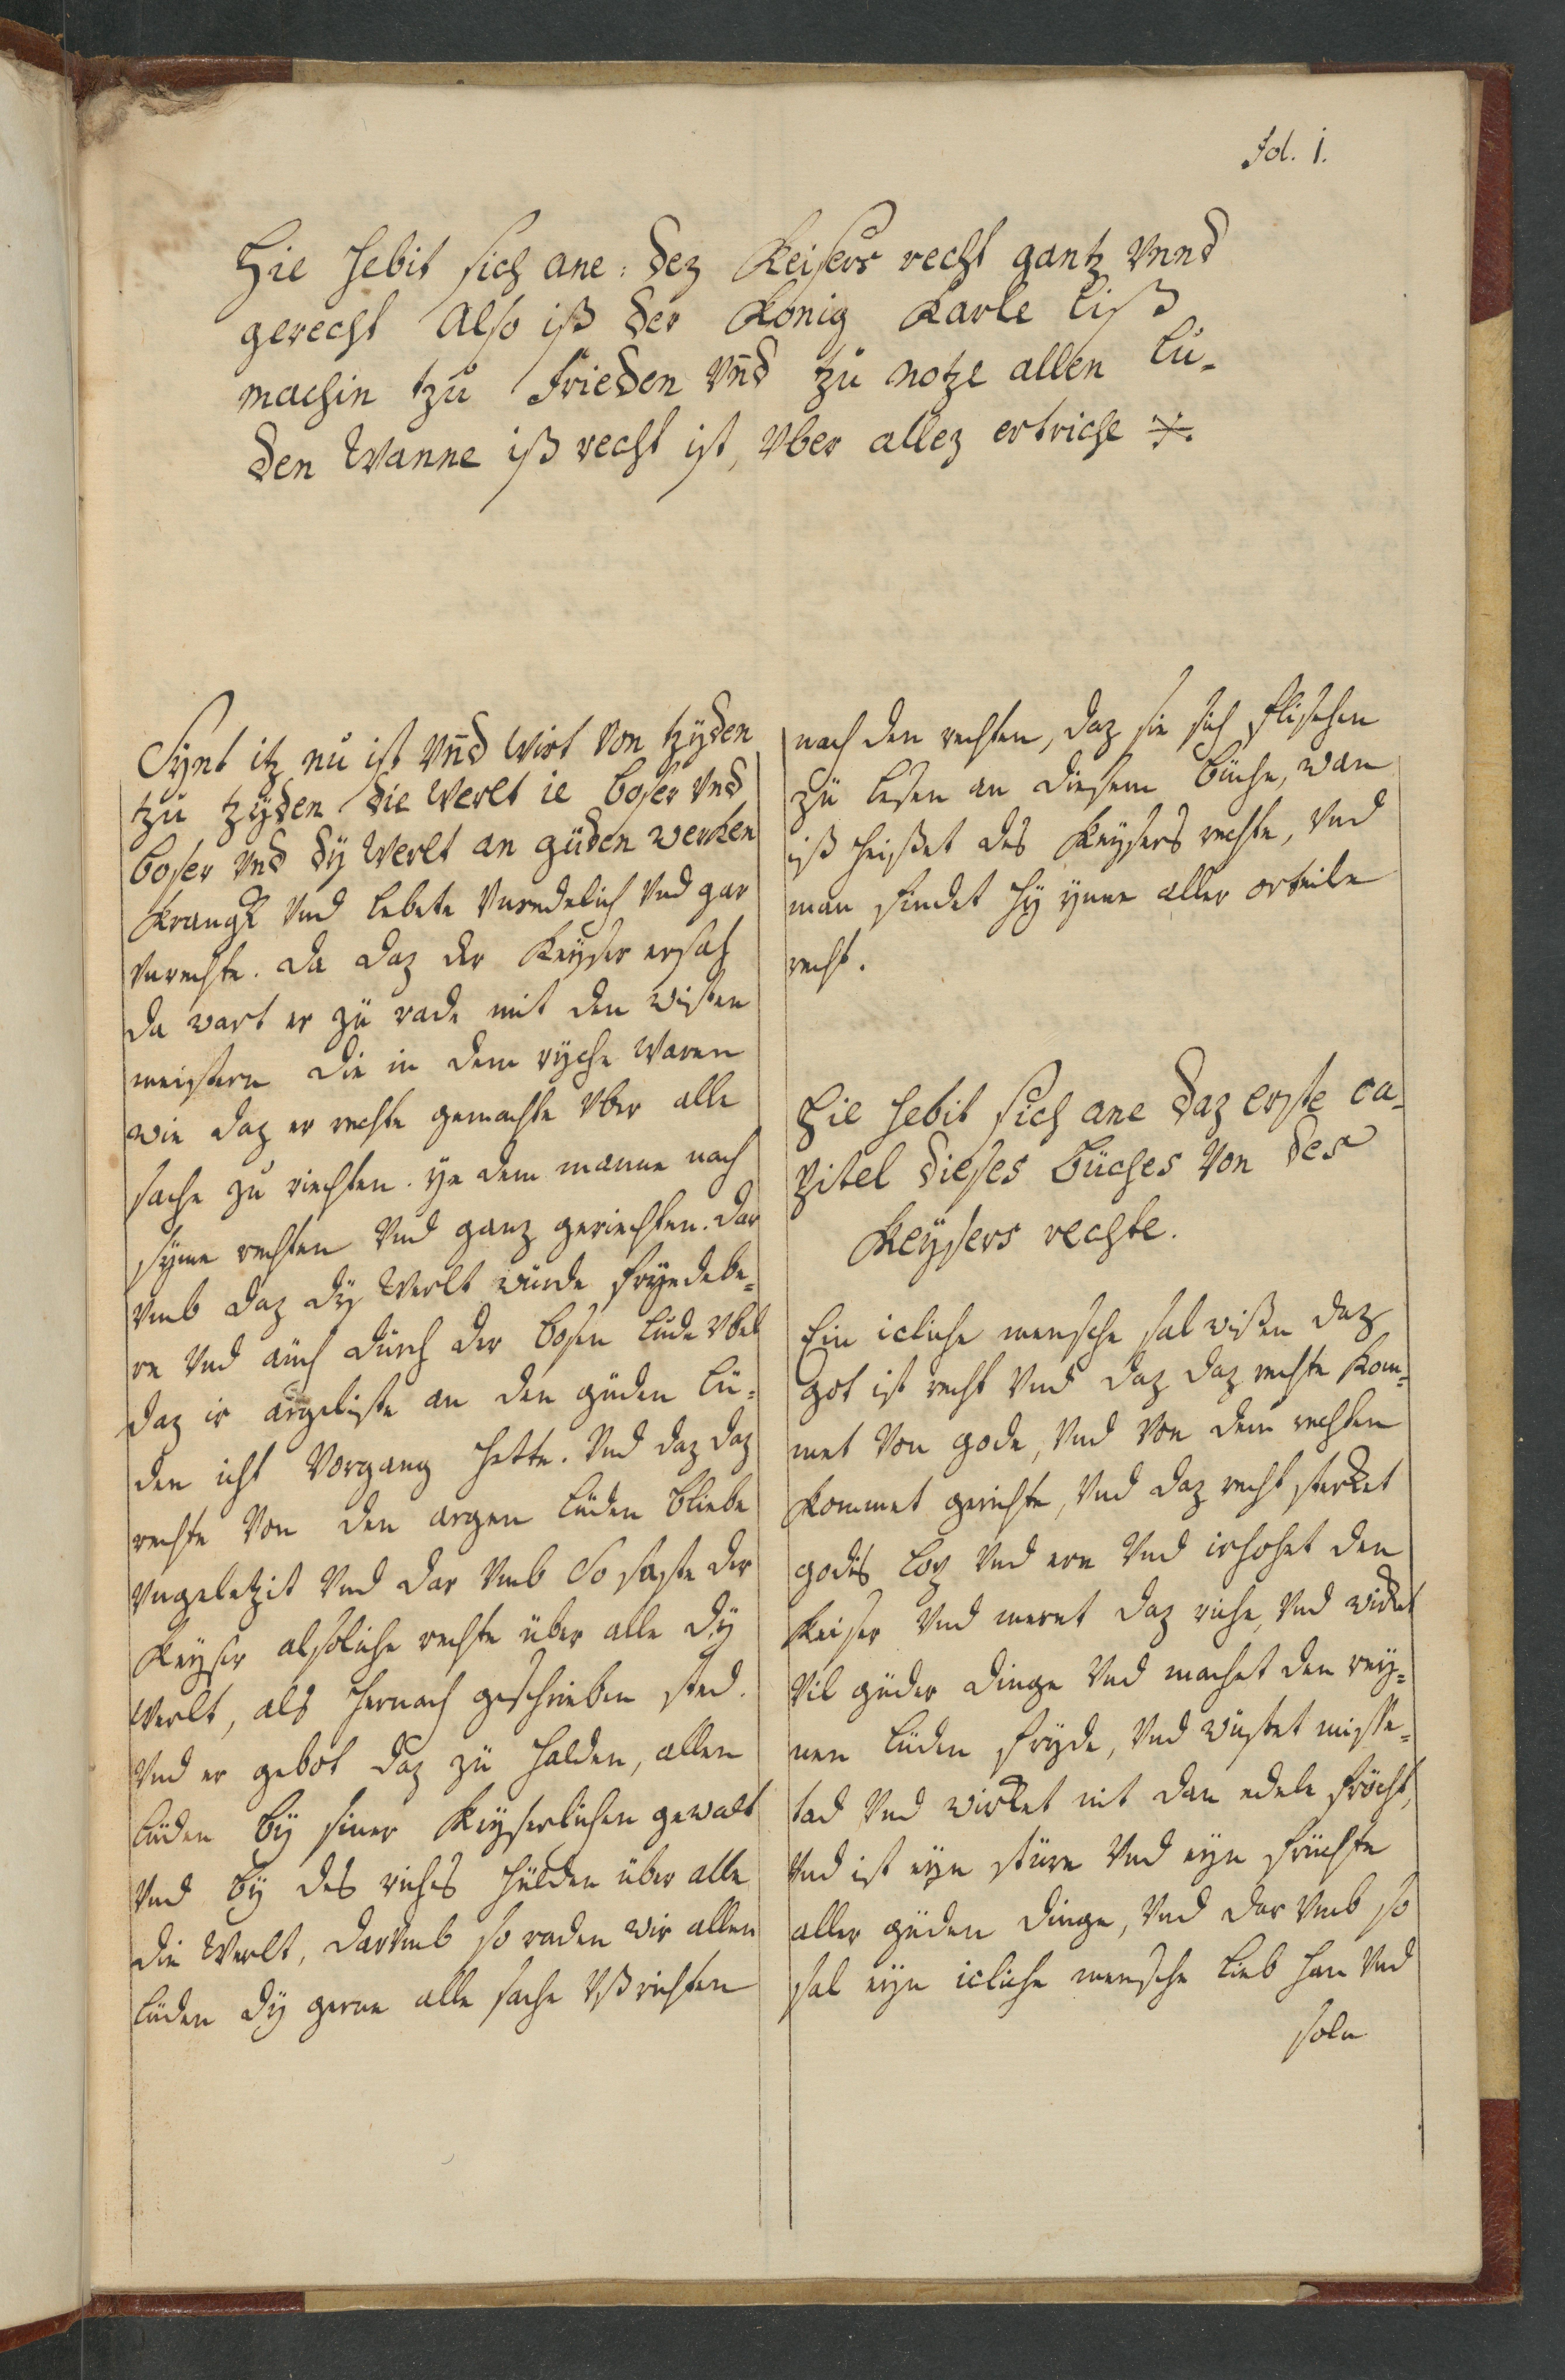 Fol. 1.
Hie hebit sich ane: dez Keisers recht gantz vnnd
gerecht Also iß der König Karle liß
machin tzu Frieden vn̄d tzu notze allen lü-
den Wanne iß recht ist, vber allez ertriche
Synt itz nu ist vn̄d wirt von tzyden
tzu tzÿden die Werlt ie boser vnd
boser vnd dÿ Werlt an güden wercken
krangk vnd lebete vnredelich vnd gar
vnrechte. da daz der Keyser ersah
da wart er zü rade mit den wißen
meistern die in dem rÿche waren
wie daz er rechte gemachte vber alle
sache zu riechten. ye dem manne nach
sÿme rechten vnd ganz geriechten. dar
vmb daz dÿ Werlt würde fryedebe-
re vnd auch durch der bosen lüde vbel
daz ir argeliste an den güden lü-
den icht Vorgang hette. vnd daz daz
rechte von den argen lüden bliebe
vngeletzit vnd dar vmb So saßte der
Keyser alsoliche rechte über alle dÿ
Werlt, als hernach geschrieben sted.
vnd er gebot daz zü halden, allen
lüden bÿ siner Keyserlichen gewalt
vnd bÿ des riches hülden über alle
die Werlt, darvmb so raden wir allen
lüden dÿ gerne alle sache vßrichten
nach den rechten, daz sie sich flischen
zü lesen an diesem büche, wan
iß heißet des Keysers rechte, vnd
man findet hÿ ynne aller orteile
recht.
Hie hebit sich ane daz erste ca-
pitel dieses büches von des
Keysers rechte.
Ein icliche mensche sal wißen daz
got ist recht vnd daz daz rechte kom-
met von gode, vnd von dem rechten
kommet gerichte, vnd daz recht sterket
godis lop vnd ere vnd irhohet den
keiser vnd meret daz riche, vnd wirket
vil güder dinge vnd machet den rey-
nen lüden fryde, vnd wüstet misse-
tad vnd wirket mit dan edele fröcht,
vnd ist eyn stüre vnd eyn früchte
aller güden dinge, vnd dar vmb so
sal eyn icliche mensche lieb han vnd
soln